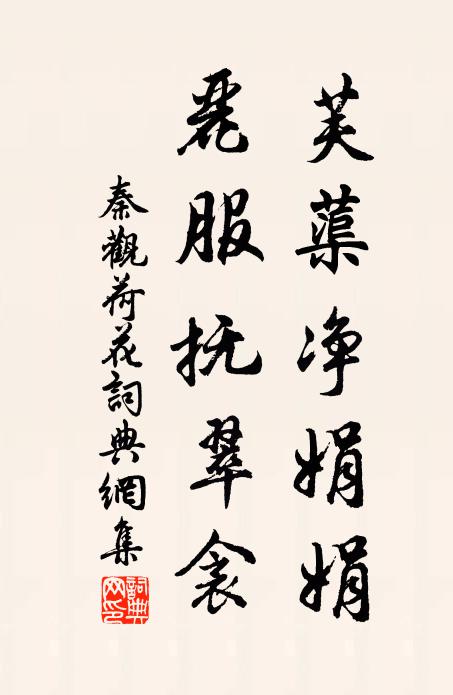 芙蕖净娟娟
麗服抚翠衾
秦觀荷花詞典網集
詞典网印